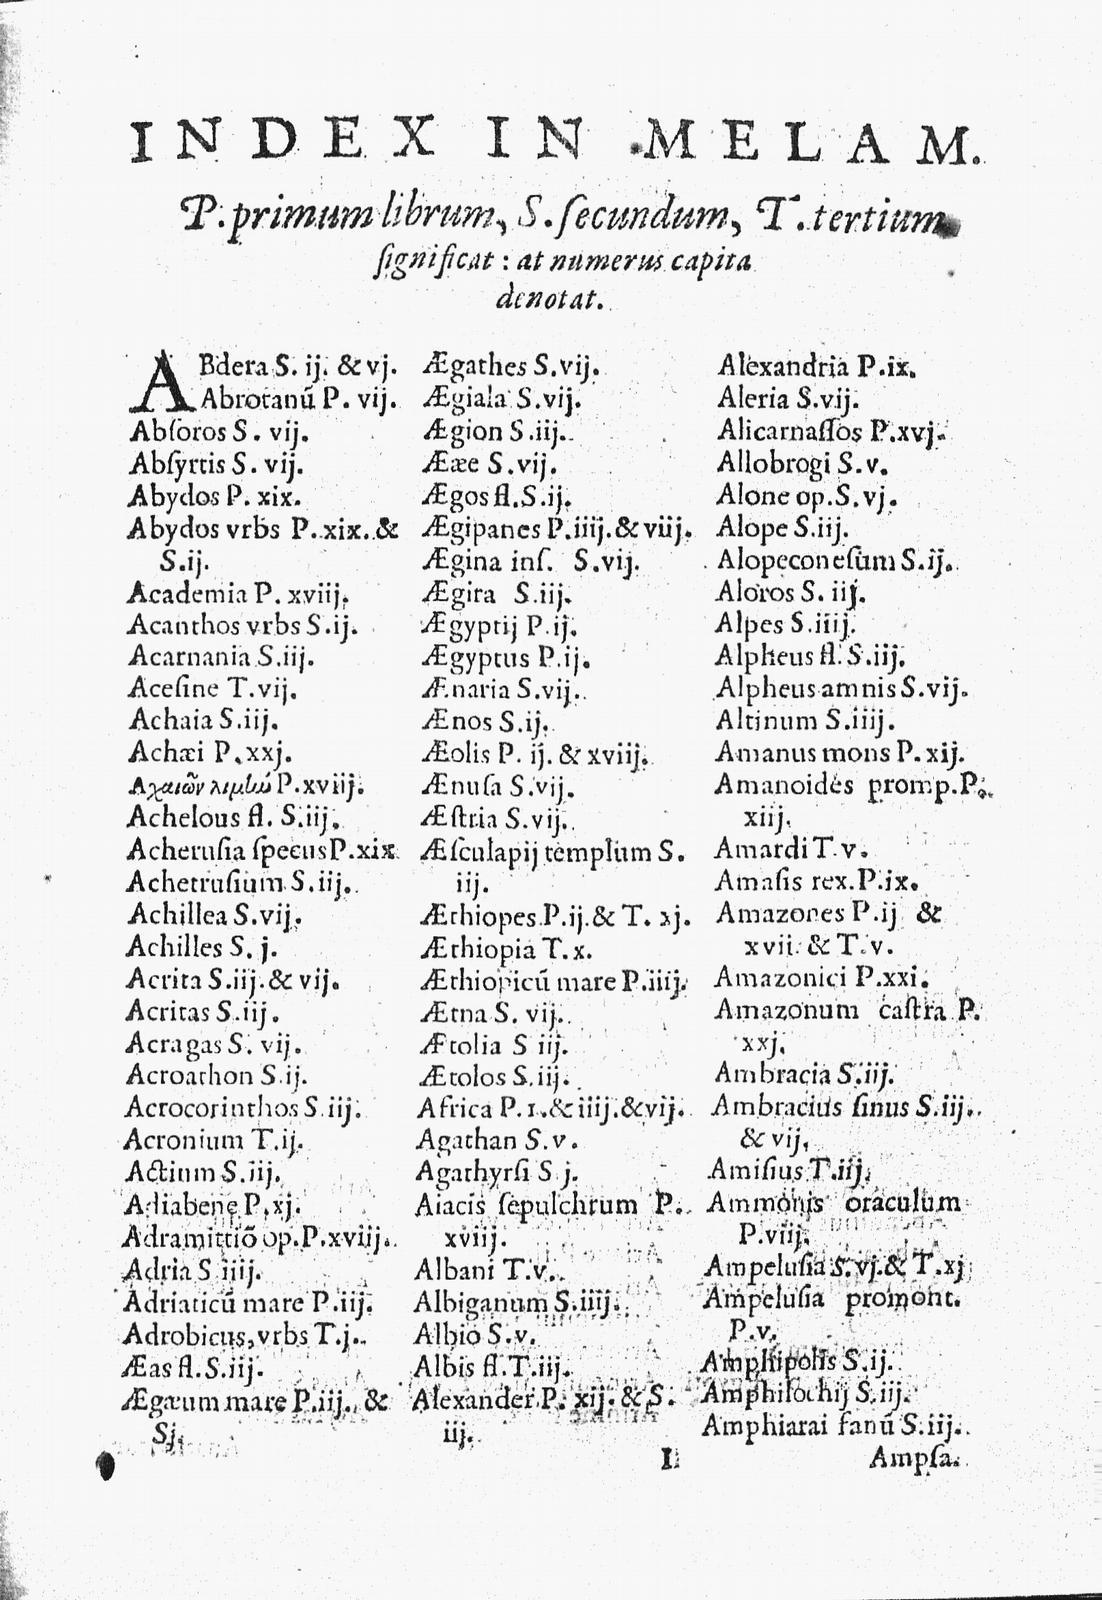 INDEX IN MELAM.
P. primum librum, S. ſecundum, T. tertium
ſignificat: at numerus capita
denotat.
ABdera S. ij. & vj.
Abrotanū P. vij.
Abſoros S. vij.
Abſyrtis S. vij.
Abydos P. xix.
Abydos vrbs P. xix. &
S.ij.
Academia P. xviij.
Acanthos vrbs S.ij.
Acarnania S.iij.
Aceſine T.vij.
Achaia S.iij.
Achæi P.xxj.
Αχαιῶν P.xviij.
Achelous fl. S.iij.
Acheruſia ſpecus P.xix
Achetruſium S.iij.
Achillea S.vij.
Achilles S. j.
Acrita S.iij.& vij.
Acritas S.iij.
Acragas S. vij.
Acroathon S.ij.
Acrocorinthos S iij.
Acronium T.ij.
Actium S.iij.
Adiabene P.xj.
Adramittiō op.P.xviij.
Adria S iiij.
Adriaticū mare P.iij.
Adrobicus, vrbs T.j.
Æas fl.S.iij.
Ægæum mare P.iij. &
Sj.
Ægathes S.vij.
Ægiala S.vij.
Ægion S.iij.
Ææe S.vij.
Ægos fl.S.ij.
Ægipanes P.iiij.& viij.
Ægina inſ. S.vij.
Ægira S.iij.
Ægyptij P.ij.
Ægyptus P.ij.
Ænaria S.vij.
Ænos S.ij.
Æolis P. ij. & xviij.
Ænuſa S.vij.
Æſtria S.vij.
Æſculapij templum S.
iij.
Æthiopes P.ij.& T. xj.
Æthiopia T.x.
Æthiopicū mare P.iiij.
Ætna S. vij.
Ætolia S iij.
Ætolos S.iij.
Africa P. 1.& iiij.&vij.
Agathan S.v.
Agathyrſi S j.
Aiacis ſepulchrum P.
xviij.
Albani T.v.
Albiganum S.iiij.
Albio S.v.
Albis fl.T.iij.
Alexander P. xij. & S.
iij.
Alexandria P.ix.
Aleria S.vij.
Alicarnaſſos P.xvj.
Allobrogi S.v.
Alone op.S.vj.
Alope S.iij.
Alopeconeſūm S.ij.
Aloros S. iij.
Alpes S.iiij.
Alpheus fl.S.iij.
Alpheus amnis S.vij.
Altinum S.iiij.
Amanus mons P. xij.
Amanoides promp.P.
xiij.
Amardi T.v.
Amaſis rex.P.ix.
Amazones P.ij &
xvii. & T.v.
Amazonici P.xxi.
Amazonum caſtra P.
xxj.
Ambracia S.iij.
Ambracius ſinus S.iij.
& vij.
Amiſius T.iij.
Ammonis oraculum
P.viij.
Ampeluſia S.vj.& T.xj
Ampeluſia promont.
P.v.
Amphipolis S.ij.
Amphilochij S.iij.
Amphiarai fanū S.iij.
I
Ampſa.